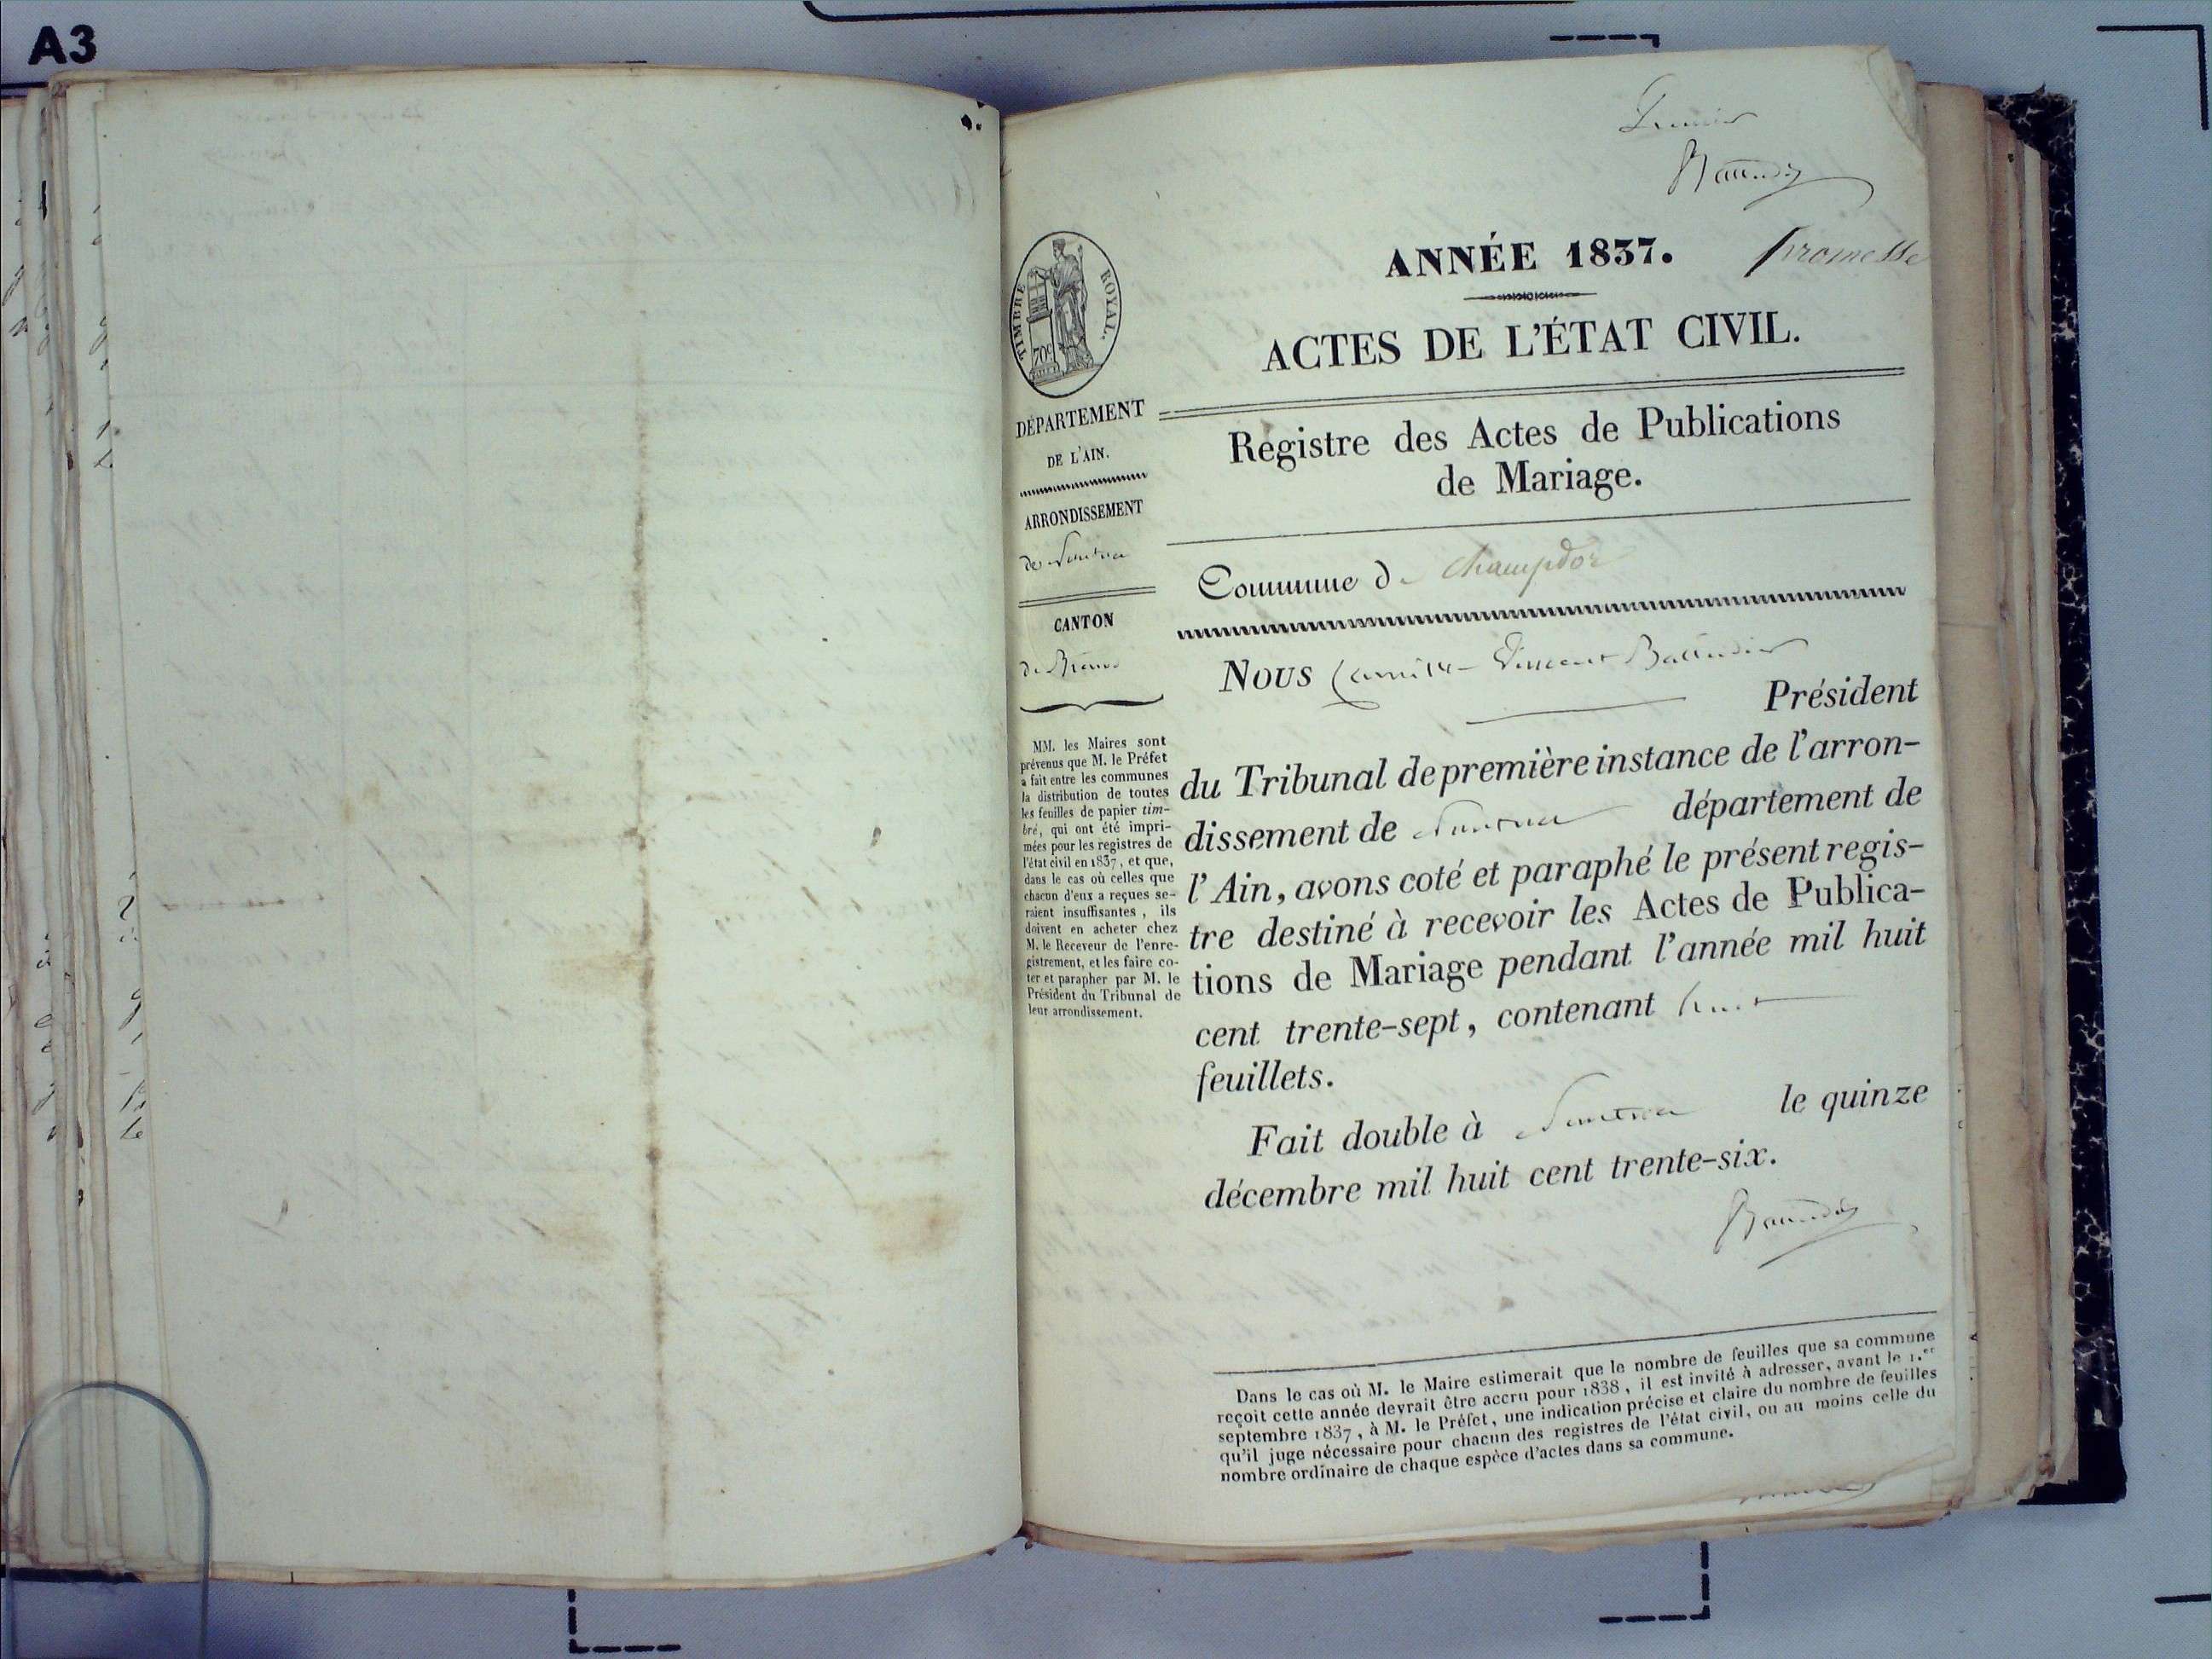 A3
Premier
Baudin
ANNÉE 1837.
Promesse
ACTES DE L'ÉTAT CIVIL.
TIMBRE ROYAL.
70c
DÉPARTEMENT
DE L'AIN.
ARRONDISSEMENT
de Nantua
CANTON
de
MM. les Maires sont
prévenus que M. le Préfet
a fait entre les communes
la distribution de toutes
les feuilles de papier tim-
bré, qui ont été impri-
mées pour les registres de
l'état civil en 1837, et que,
dans le cas où celles que
chacun d'eux a reçues se-
raient insuffisantes, ils
doivent en acheter chez
M. le Receveur de l'enre-
gistrement, et les faire co-
ter et parapher par M. le
Président du Tribunal de
leur arrondissement.
Registre des Actes de Publications
de Mariage.
Commune de Champdor
Nous Camille Vincent
Président
du Tribunal de première instance de l'arron-
dissement de Nantua département de
l'Ain, avons coté et paraphé le présent regis-
tre destiné à recevoir les Actes de Publica-
tions de Mariage pendant l'année mil huit
cent trente-sept, contenant huit
feuillets.
Fait double à Nantua le quinze
décembre mil huit cent trente-six.
Dans le cas où M. le Maire estimerait que le nombre de feuilles que sa commune
reçoit cette année devrait être accru pour 1838, il est invité à adresser, avant le 1.er
septembre 1837, à M. le Préfet, une indication précise et claire du nombre de feuilles
qu'il juge nécessaire pour chacun des registres de l'état civil, ou au moins celle du
nombre ordinaire de chaque espèce d'actes dans sa commune.